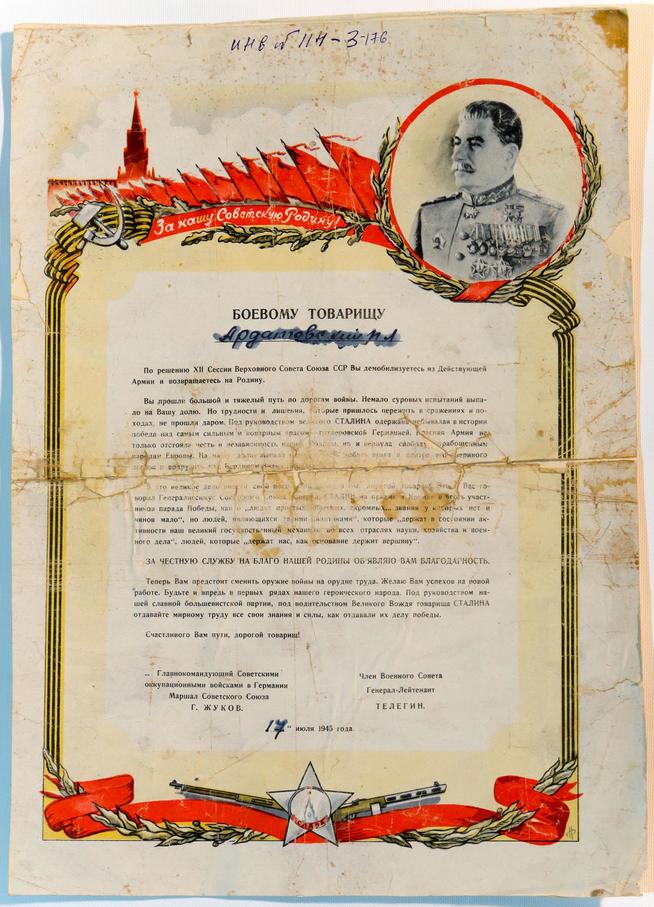 инв №
За нашу Советскую Родину!
БОЕВОМУ ТОВАРИЩУ
По решению XII Сессии Верховного Совета Союза ССР Вы демобилизуетесь из Действующей
Армии и возвращаетесь на Родину.
Вы прошли большой и тяжелый путь по дорогам войны. Немало суровых испытаний выпа-
ло на Вашу долю. Но трудности и лишения, которые пришлось пережить в сражениях и по-
ходах, не прошли даром. Под руководством великого СТАЛИНА одержана небывалая в истории
победа над самым сильным и коварным врагом гитлеровской Германией. Красная Армия не
только отстояла честь и независимость нашей Родины, но и вернула свободу порабощенным
народам Европы. На
это великое дело внесли свой дорогой товарищ. Это о Вас го-
ворил Генералиссимус Советского Союза СТАЛИН на приеме в Кремле в честь участ-
ников парада Победы, как о „людях простых, обычных, скромных", звания у которых нет и
чинов мало", но людях, являющихся теми „винтиками", которые „держат в состоянии ак-
тивности наш великий государственный механизм во всех отраслях науки, хозяйства и воен-
ного дела", людей, которые „держат нас, как основание держит вершину".
ЗА ЧЕСТНУЮ СЛУЖБУ НА БЛАГО НАШЕЙ РОДИНЫ ОБ'ЯВЛЯЮ ВАМ БЛАГОДАРНОСТЬ.
Теперь Вам предстоит сменить оружие войны на орудие труда. Желаю Вам успехов на новой
работе. Будьте и впредь в первых рядах нашего героического народа. Под руководством на-
шей славной большевистской партии, под водительством Великого Вождя товарища СТАЛИНА
отдавайте мирному труду все свои знания и силы, как отдавали их делу победы.
Счастливого Вам пути, дорогой товарищ!
Главнокомандующий Советскими
оккупационными войсками в Германии
Маршал Советского Союза
Г. ЖУКОВ.
Член Военного Совета
Генерал-Лейтенант
ТЕЛЕГИН.
17 " июля 1945 года
СЛАВА